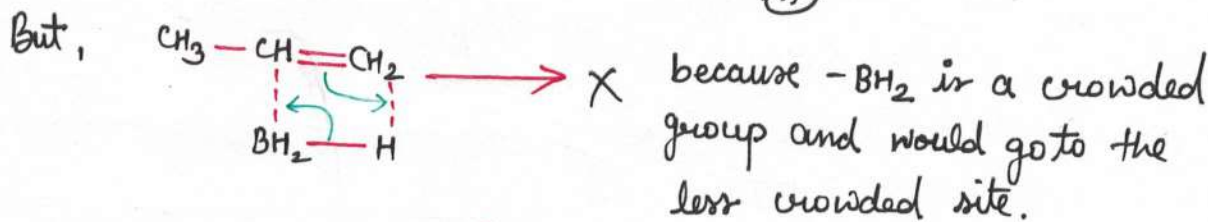 But, CH3 — CH = CH2 → X because -BH2 is a crowded
BH2 — H group and would go to the
less crowded site.